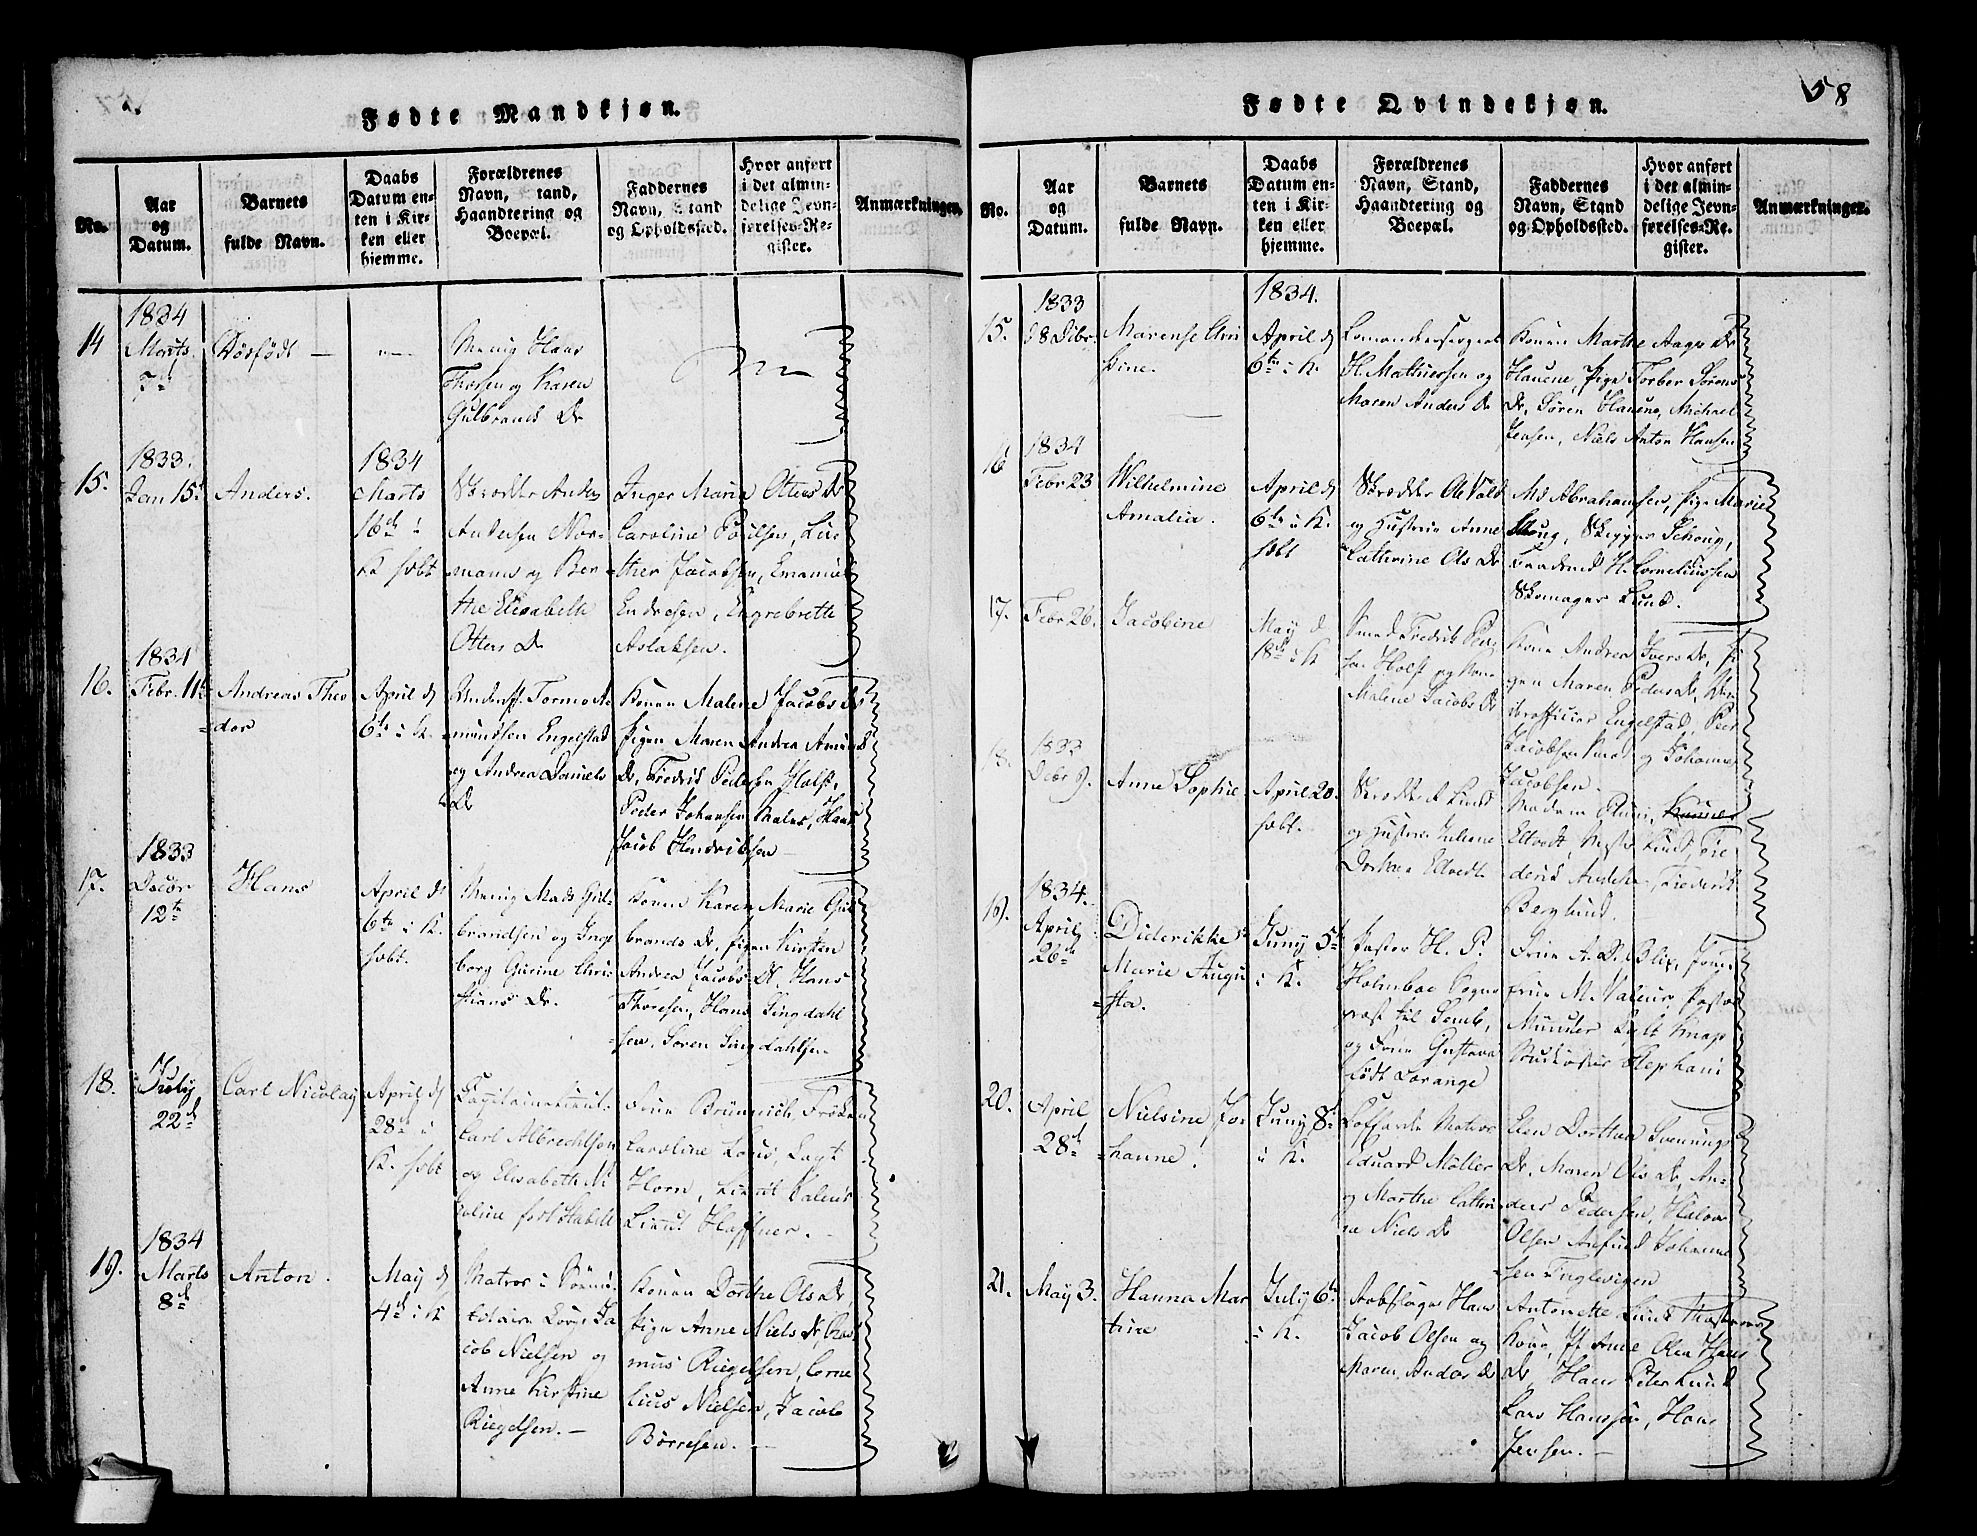 Fødte Mandkjøn.
No.
Aar
og
Datum.
Barnets
fulde Navn.
Daabs
Datum en-
ten i Kir-
ken eller
hjemme.
Forældrenes
Navn, Stand,
Haandtering og
Boepæl.
Faddernes
Navn, Stand
og Opholdssted.
Hvor anført
i det almin-
delige Jevn-
førelses-Re-
gister.
Anmærkninger.
14
1834
Marts
7de
Dødfødt —
Menig Hans
Thorsen og Karen
Gulbrands Dr
15.
1833.
Jan 15d
Anders.
1834
Marts
16de i
K. høbt
Skrædder Anders
Andersen Nor-
mann og Ber-
the Elisabeth
Otters Dr
Inger Maria Otters Dr
Caroline Poulsen, Lu-
ther Jacobsen, Emanuel
Endresen, Engebrette
Aslaksen.
16.
1834
Febr. 11te
Andreas Theo
=dor
April d
6te i K.
Undoff. Tormo A-
mundsen Engelstad
og Andrea Daniels
Dr
Konen Malene Jacobs Dr
Pigen Maren Andrea Amund
Dr, Fredrik Pedersen Holst,
Peder Johansen, Hans
Jacob Hendriksen
17.
1833
Decbr
12te
Hans
April d
6te i K.
høbt.
Menig Mads Gul-
brandsen og Inge
borg Gurine Chri-
stians Dr.
Konen Karen Marie Gul
brands Dr, pigen Kirsten
Andrea Jacobs Dr. Hans
Thoresen, Hans Lingdahl
=sen, Søren Lingdahlsen
18.
July
22d
Carl Nicolay
April d
28de i
K. høbt
Capitainlieut.
Carl Albrechtson
og Elisabeth Ni
coline født Stabell
Frue Brünnich, Frøken
Caroline Lous, Capt
Horn, Lieut Valeur
Lieut Haffner.
19.
1834
Marts
8de
Anton.
May d
4de i K
Matros i
Jacob Nielsen og
Anne Kirstine
Riegelsen. —
Konen Dorthe Ols Dr,
Pigen Anne Niels Dr Ras
mus Riegelsen, Corne
lius Nielsen, Jacob
Börresen. —
58
Fødte Qvindekjøn.
No.
Aar
og
Datum.
Barnets
fulde Navn.
Daabs
Datum en-
ten i Kir-
ken eller
hjemme.
Forældrenes
Navn, Stand,
Haandtering og
Boepæl.
Faddernes
Navn, Stand
og Opholdssted.
Hvor anført
i det almin-
delige Jevn-
førelses-Re-
gister.
Anmærkninger.
15.
1833
Dcbr.
Marense Chri
stine.
1834.
April d
6te i K.
Commandeersergeant
H. Mathiessen og
Maren Anders Dr
Konen Marthe Aage Dr
Hauene, Pige Torber Sørens
Dr, Søren Hauene, Michael
Jensen, Niels Anton Hansen
16
1834
Febr 23
Wilhelmine
Amalia.
April d
6te i K.
høbt
Skrædder Ole Vold
og Hustrue Anne
Catherine Ols Dr
Md Abrahamsen, Pige Marie
Schoug, Skipper Schoug,
H. Corneliussen
Skomager Lund.
17.
Febr 26.
Jacobine
May d
18de i K
Smed Fredrik Peder
sen Holst og Kone
Malene Jacobs Dr
Kone Andrea Ivers Dr, Pi
gen Maren Peders Dr, Un-
derofficier Engelstad, Peer
Jacobsen Smed og Johannes
Jacobsen.
18.
1833
Dcbr 9.
Anne Sophie
April 20.
høbt.
Skrædder Lund
og Hustrue Juliane
Dorthea Eltvedt
Madam
Eltvedt, Lund, Fre
derik Frederik
Berglund.
19.
1834.
April
26de
Diderikke
Marie Augu
=sta.
Juny 5te
i K.
Pastor H. P.
Holmboe Sogne
præst til Semb,
og Frue Gustava
født Lorange
Frue A. D. Blix,
frue M. Valeur, Pastor
Münster Capt Knap
Studiosus Stephani
20.
April
28de
Nielsine Jo=
=hanne.
Juny 8de
i K.
Coffardie Matros
Eduard Møller
og Marthe Cathri
ne Niels Dr
Elen Dorthea Svennings
Dr, Maren Ols Dr, An-
ders Pedersen, Halvor
Olsen Johanne
=sen
21.
May 3.
Hanna Mar
tine
July 6te
i K.
Rebslager Hans
Jacob Olsen og
Maren Anders Dr
Antonette Lund
Kone, Pg Anne Olea Hans
Dr, Hans Peter Lund
Lars Hanssøn, Hans
Jensen. —